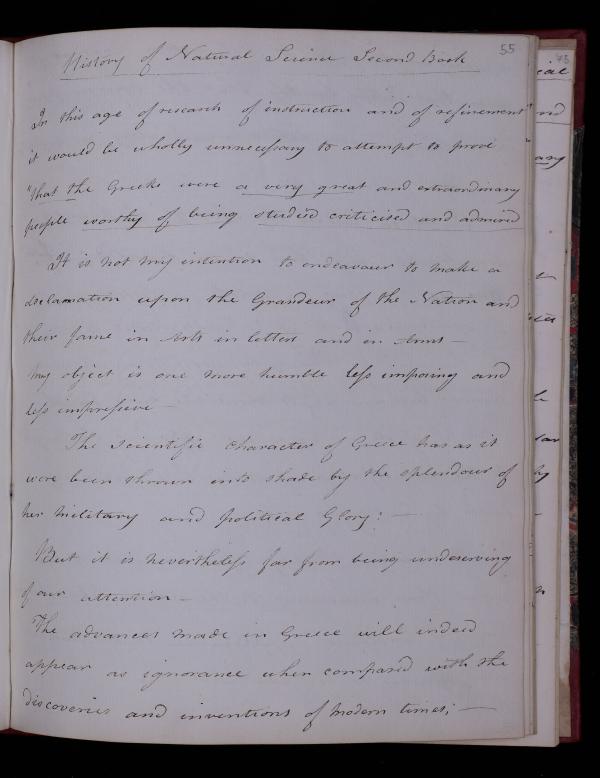 55
History of Natural Science Second Book
In this age of research of instruction and of refinement
it would be wholly unnecessary to attempt to prove
"that the Greeks were a very great and extraordinary
people worthy of being studied criticised and admired
It is not my intention to endeavour to make a
declamation upon the Grandeur of the Nation and
their fame in Arts in letters and in Arms —
my object is one more humble less imposing and
less impressive —
The scientific character of Greece has as it
were been thrown into shade by the splendour of
her military and political Glory: —
But it is nevertheless far from being undeserving
of our attention —
The advances made in Greece will indeed
appear as ignorance when compared with the
discoveries and inventions of modern times; —